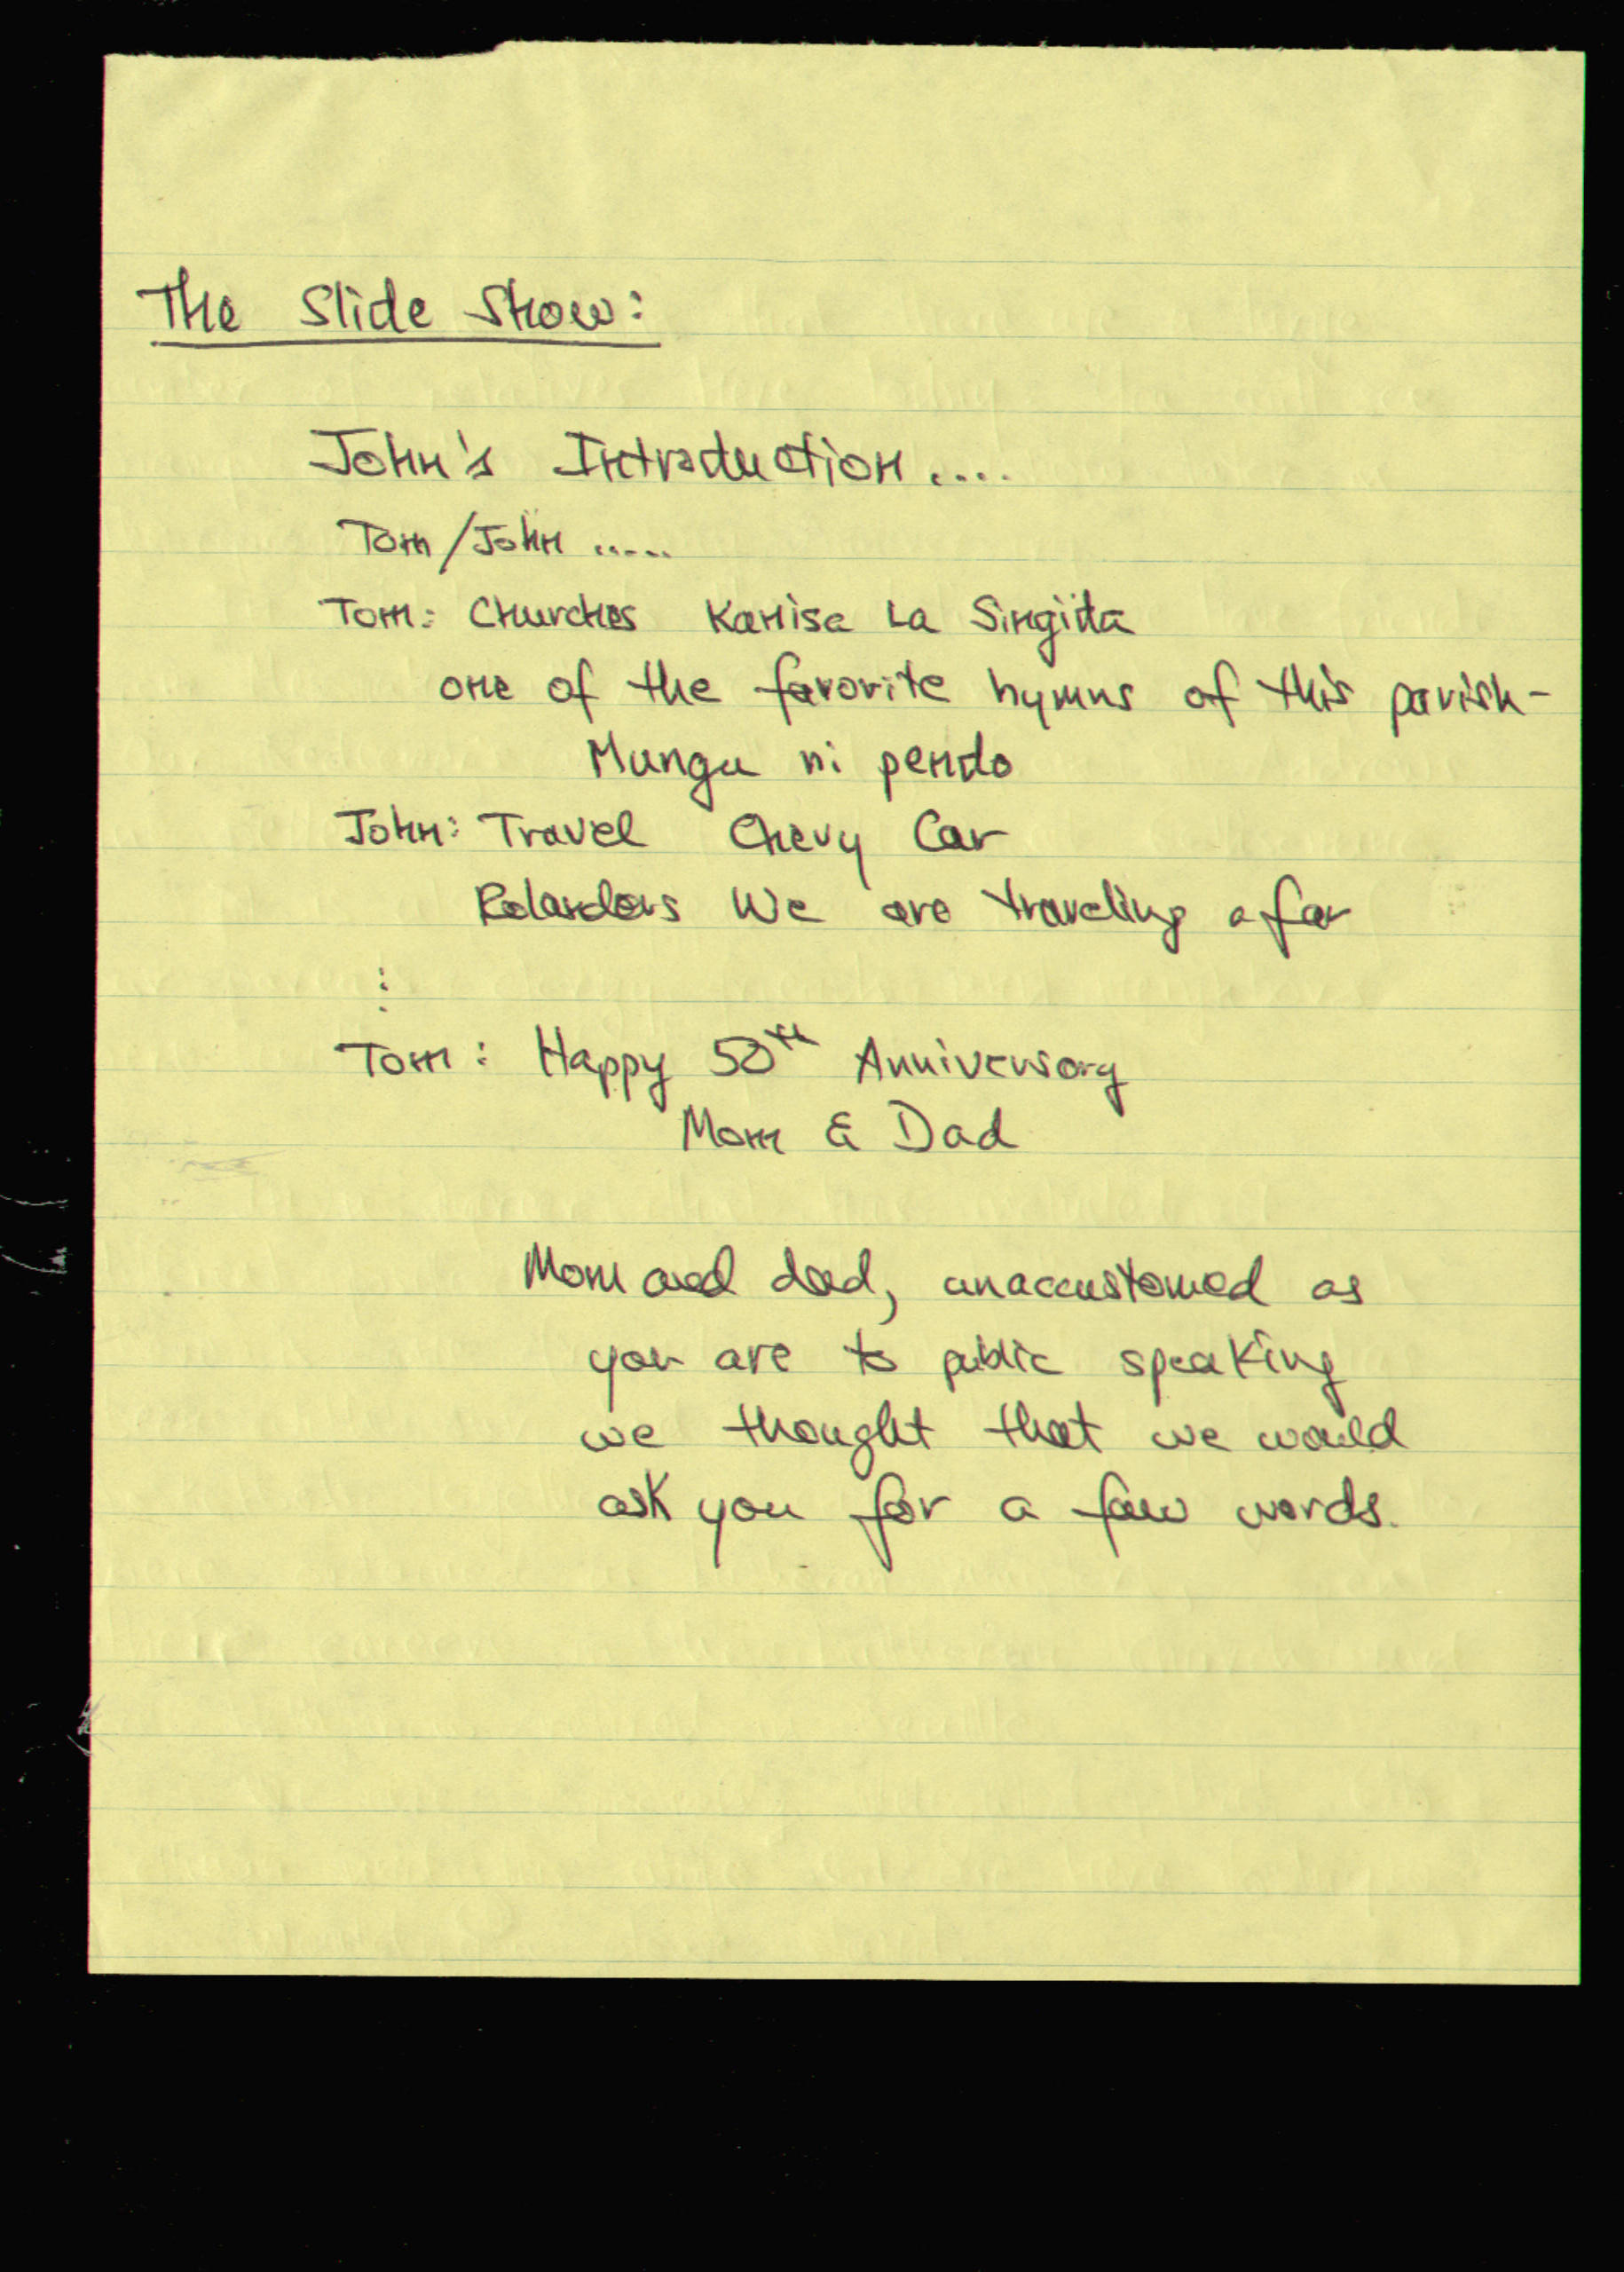 The Slide Show:
John's Introduction....
Tom/John .....
Tom: Churches Kanisa La Singida
one of the favorite hymns of this parish-
Mungu ni pendo
John: Travel Chevy Car
We are traveling afar
:
Tom: Happy 50th Anniversary
Mom & Dad
Mom and dad, unaccustomed as
you are to public speaking
we thought that we would
ask you for a few words.